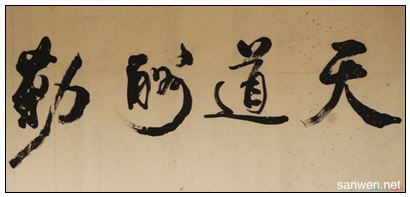 天道酬勤
sanwen.net